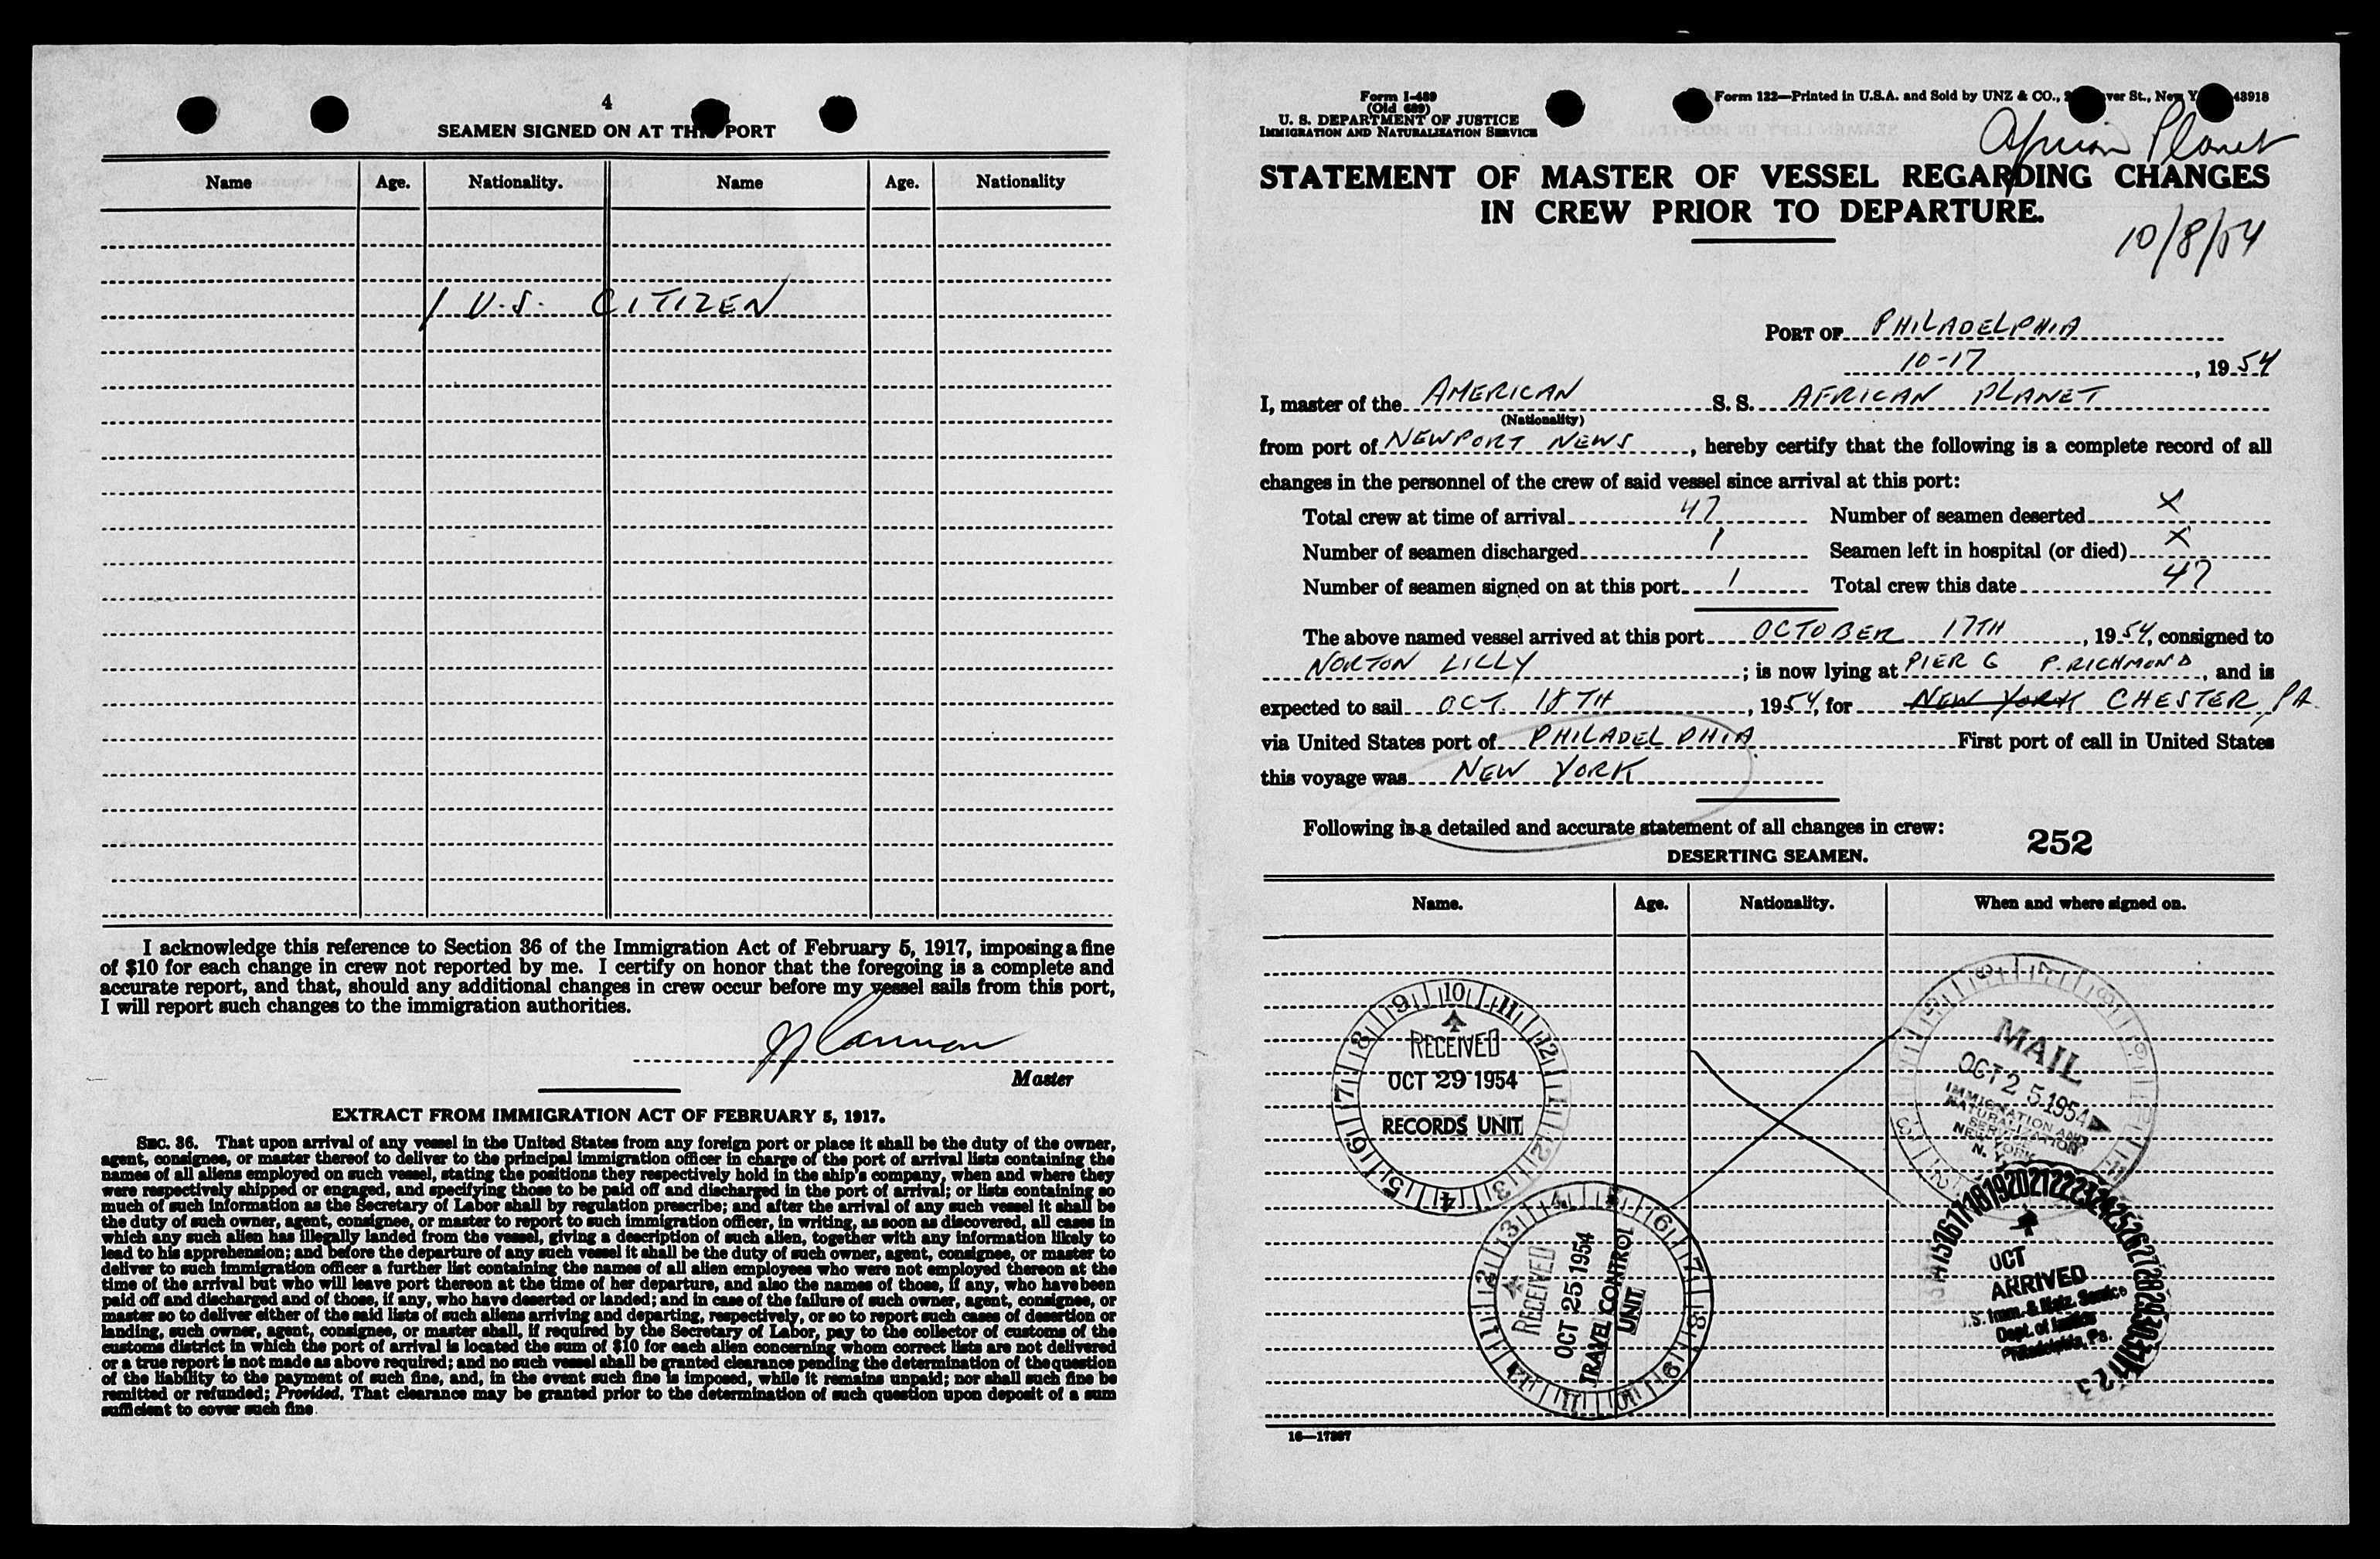 4
SEAMEN SIGNED ON AT THIS PORT
Name Age. Nationality. Name Age. Nationality
1 U.S. CITIZEN
I acknowledge this reference to Section 36 of the Immigration Act of February 5, 1917, imposing a fine
of $10 for each change in crew not reported by me. I certify on honor that the foregoing is a complete and
accurate report, and that, should any additional changes in crew occur before my vessel sails from this port,
I will report such changes to the immigration authorities.
Master
EXTRACT FROM IMMIGRATION ACT OF FEBRUARY 5, 1917.
SEC. 36. That upon arrival of any vessel in the United States from any foreign port or place it shall be the duty of the owner,
agent, consignee, or master thereof to deliver to the principal immigration officer in charge of the port of arrival lists containing the
names of all aliens employed on such vessel, stating the positions they respectively hold in the ship's company, when and where they
were respectively shipped or engaged, and specifying those to be paid off and discharged in the port of arrival; or lists containing so
much of such information as the Secretary of Labor shall by regulation prescribe; and after the arrival of any such vessel it shall be
the duty of such owner, agent, consignee, or master to report to such immigration officer, in writing, as soon as discovered, all cases in
which any such alien has illegally landed from the vessel, giving a description of such alien, together with any information likely to
lead to his apprehension; and before the departure of any such vessel it shall be the duty of such owner, agent, consignee, or master to
deliver to such immigration officer a further list containing the names of all alien employees who were not employed thereon at the
time of the arrival but who will leave port thereon at the time of her departure, and also the names of those, if any, who have been
paid off and discharged and of those, if any, who have deserted or landed; and in case of the failure of such owner, agent, consignee, or
master so to deliver either of the said lists of such aliens arriving and departing, respectively, or so to report such cases of desertion or
landing, such owner, agent, consignee, or master shall, if required by the Secretary of Labor, pay to the collector of customs of the
customs district in which the port of arrival is located the sum of $10 for each alien concerning whom correct lists are not delivered
or a true report is not made as above required; and no such vessel shall be granted clearance pending the determination of the question
of the liability to the payment of such fine, and, in the event such fine is imposed, while it remains unpaid; nor shall such fine be
remitted or refunded; Provided, That clearance may be granted prior to the determination of such question upon deposit of a sum
sufficient to cover such fine.
Form I-489
(Old 689)
U. S. DEPARTMENT OF JUSTICE
IMMIGRATION AND NATURALIZATION SERVICE
Form 122—Printed in U.S.A. and Sold by UNZ & CO., ver St., New Y 43918
African Planet
STATEMENT OF MASTER OF VESSEL REGARDING CHANGES
IN CREW PRIOR TO DEPARTURE.
10/8/54
PORT OF PHILADELPHIA
10-17, 1954
I, master of the AMERICAN S. S. AFRICAN PLANET
(Nationality)
from port of NEWPORT NEWS, hereby certify that the following is a complete record of all
changes in the personnel of the crew of said vessel since arrival at this port:
Total crew at time of arrival 47 Number of seamen deserted X
Number of seamen discharged 1 Seamen left in hospital (or died) X
Number of seamen signed on at this port 1 Total crew this date 47
The above named vessel arrived at this port OCTOBER 17TH, 1954, consigned to
NORTON LILLY; is now lying at PIER G P. RICHMOND, and is
expected to sail OCT. 18TH, 1954, for NEW YORK CHESTER, PA.
via United States port of PHILADELPHIA First port of call in United States
this voyage was NEW YORK
Following is a detailed and accurate statement of all changes in crew:
252
DESERTING SEAMEN.
Name. Age. Nationality. When and where signed on.
RECEIVED
OCT 29 1954
RECORDS UNIT
MAIL
OCT 25 1954
IMMIGRATION AND
NATURALIZATION
SERVICE
NEW YORK
N. Y.
RECEIVED
OCT 25 1954
TRAVEL CONTROL
UNIT
OCT
ARRIVED
U.S. Imm. & Natz. Service
Dept. of Justice
Philadelphia, Pa.
16—17887